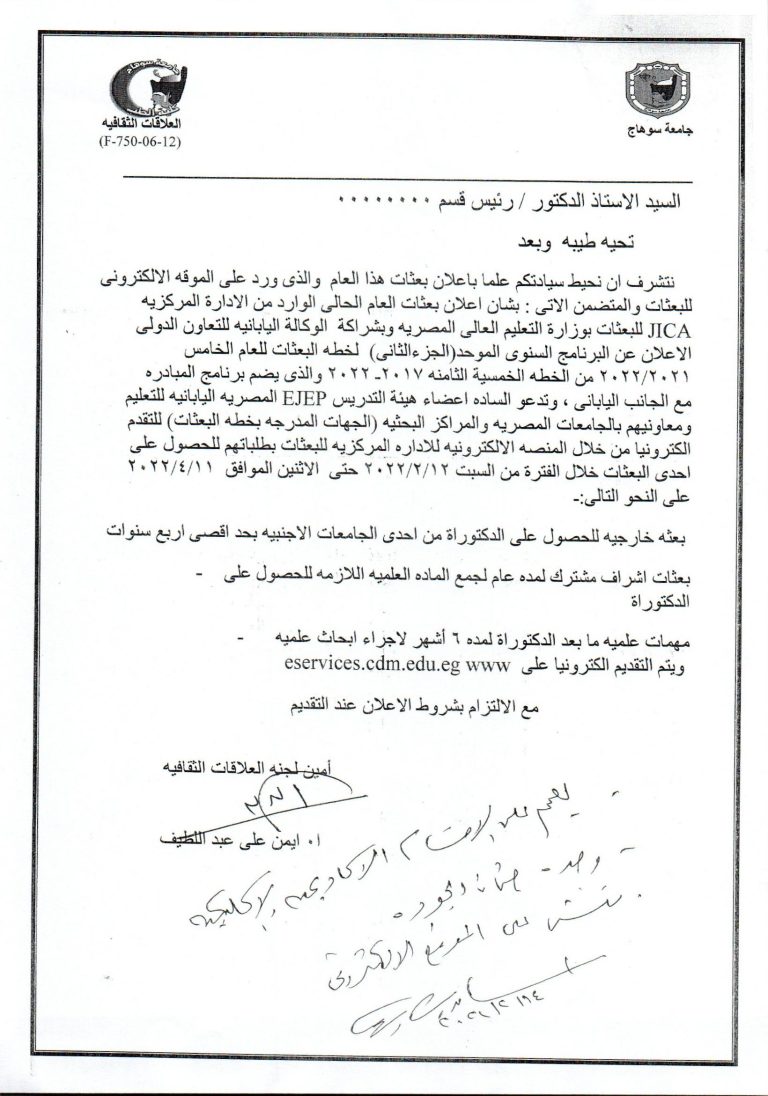 جامعة سوهاج
كلية الطب
العلاقات الثقافيه
(F-750-06-12)
جامعة سوهاج
السيد الاستاذ الدكتور / رئيس قسم ٠٠٠٠٠٠٠٠
تحيه طيبه وبعد
نتشرف ان نحيط سيادتكم علما باعلان بعثات هذا العام والذى ورد على الموقه الالكترونى
للبعثات والمتضمن الاتى : بشان اعلان بعثات العام الحالى الوارد من الادارة المركزيه
JICA للبعثات بوزارة التعليم العالى المصريه وبشراكة الوكالة اليابانيه للتعاون الدولى
الاعلان عن البرنامج السنوى الموحد(الجزءالثانى) لخطه البعثات للعام الخامس
٢٠٢٢/٢٠٢١ من الخطه الخمسية الثامنه ٢٠١٧-٢٠٢٢ والذى يضم برنامج المبادره
مع الجانب اليابانى ، وتدعو الساده اعضاء هيئة التدريس EJEP المصريه اليابانيه للتعليم
ومعاونيهم بالجامعات المصريه والمراكز البحثيه (الجهات المدرجه بخطه البعثات) للتقدم
الكترونيا من خلال المنصه الالكترونيه للاداره المركزيه للبعثات بطلباتهم للحصول على
احدى البعثات خلال الفترة من السبت ٢٠٢٢/٢/١٢ حتى الاثنين الموافق ٢٠٢٢/٤/١١
على النحو التالى:-
بعثه خارجيه للحصول على الدكتوراة من احدى الجامعات الاجنبيه بحد اقصى اربع سنوات
بعثات اشراف مشترك لمده عام لجمع الماده العلميه اللازمه للحصول على -
الدكتوراة
مهمات علميه ما بعد الدكتوراة لمده ٦ أشهر لاجراء ابحاث علميه -
ويتم التقديم الكترونيا على eservices.cdm.edu.eg www
مع الالتزام بشروط الاعلان عند التقديم
أمين لجنه العلاقات الثقافيه
ا٠ ايمن على عبد اللطيف
- يعمم على الاقسام الاكاديمية والاكلينيكية
- وحدة ضمان الجودة
- ينشر على الموقع الالكترونى